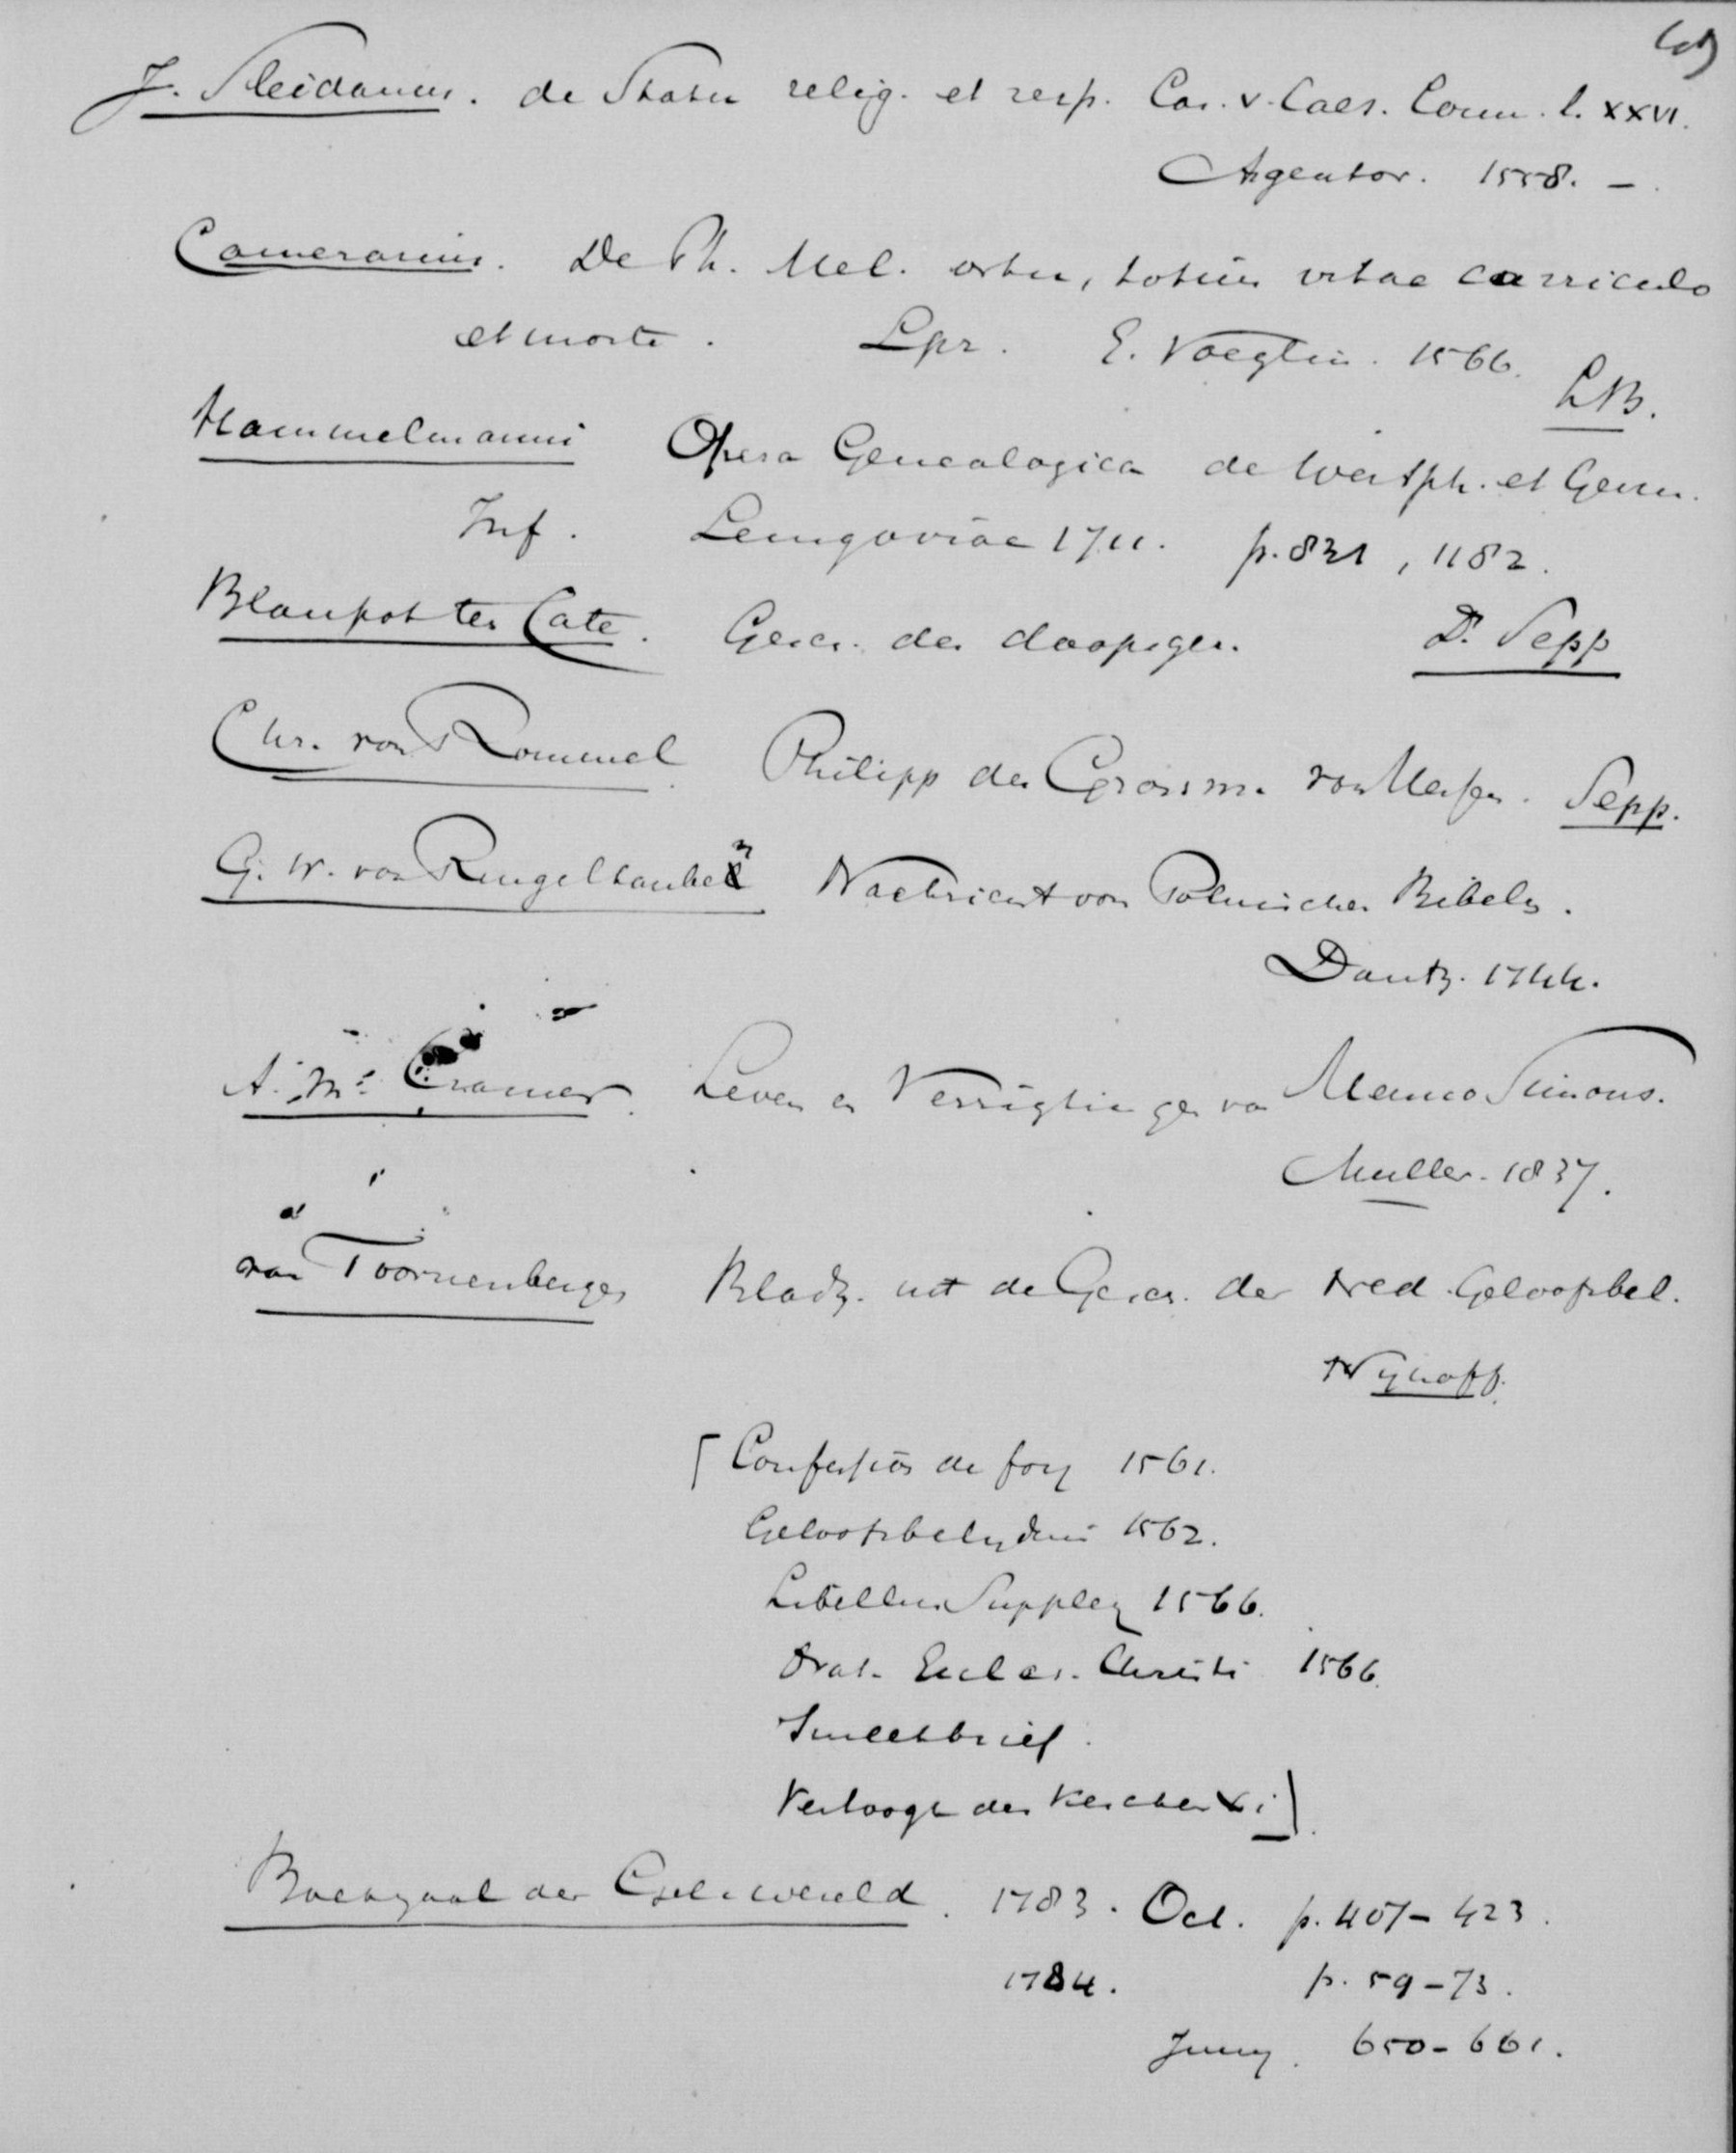 J. Sleidanus. de Statu relig. et resp. Car. v. Caes. Comm. l. XXVI.
Argentor. 1558. –
Camerarius. De Ph. Mel. ortu, totius vitae curriculo
et morte. Lpz. E. Voegelin. 1566.
LB.
Hammelmanni Opera Genealogica de Westph. et Germ.
Inf. Lemgoviae 1711. p. 821, 1182.
Blaupot ten Cate. Gesch. der doopsgez. Dr. Sepp
Chr. von Rommel Philipp der Grossm. von Hessen. Sepp.
G. W. von Ringeltaube Nachricht von Polnischen Bibeln.
Dantz. 1744.
A. M. Cramer. Leven en Verrigtingen van Menno Simons.
Muller. 1837.
van Toornenbergen Bladz. uit de Gesch. der Ned. Geloofsbel.
Nijhoff.
[Confession de foy 1561.
Geloofsbelydenis 1562.
Libellus Supplex 1566.
Orat. Eccles. Christi 1566.
Smeekbrief.
Vertoogh der Kercken Xi].
Boekzaal der Gel. wereld. 1783. Oct. p. 407–423.
1784. p. 59–73.
Juny. 650–661.